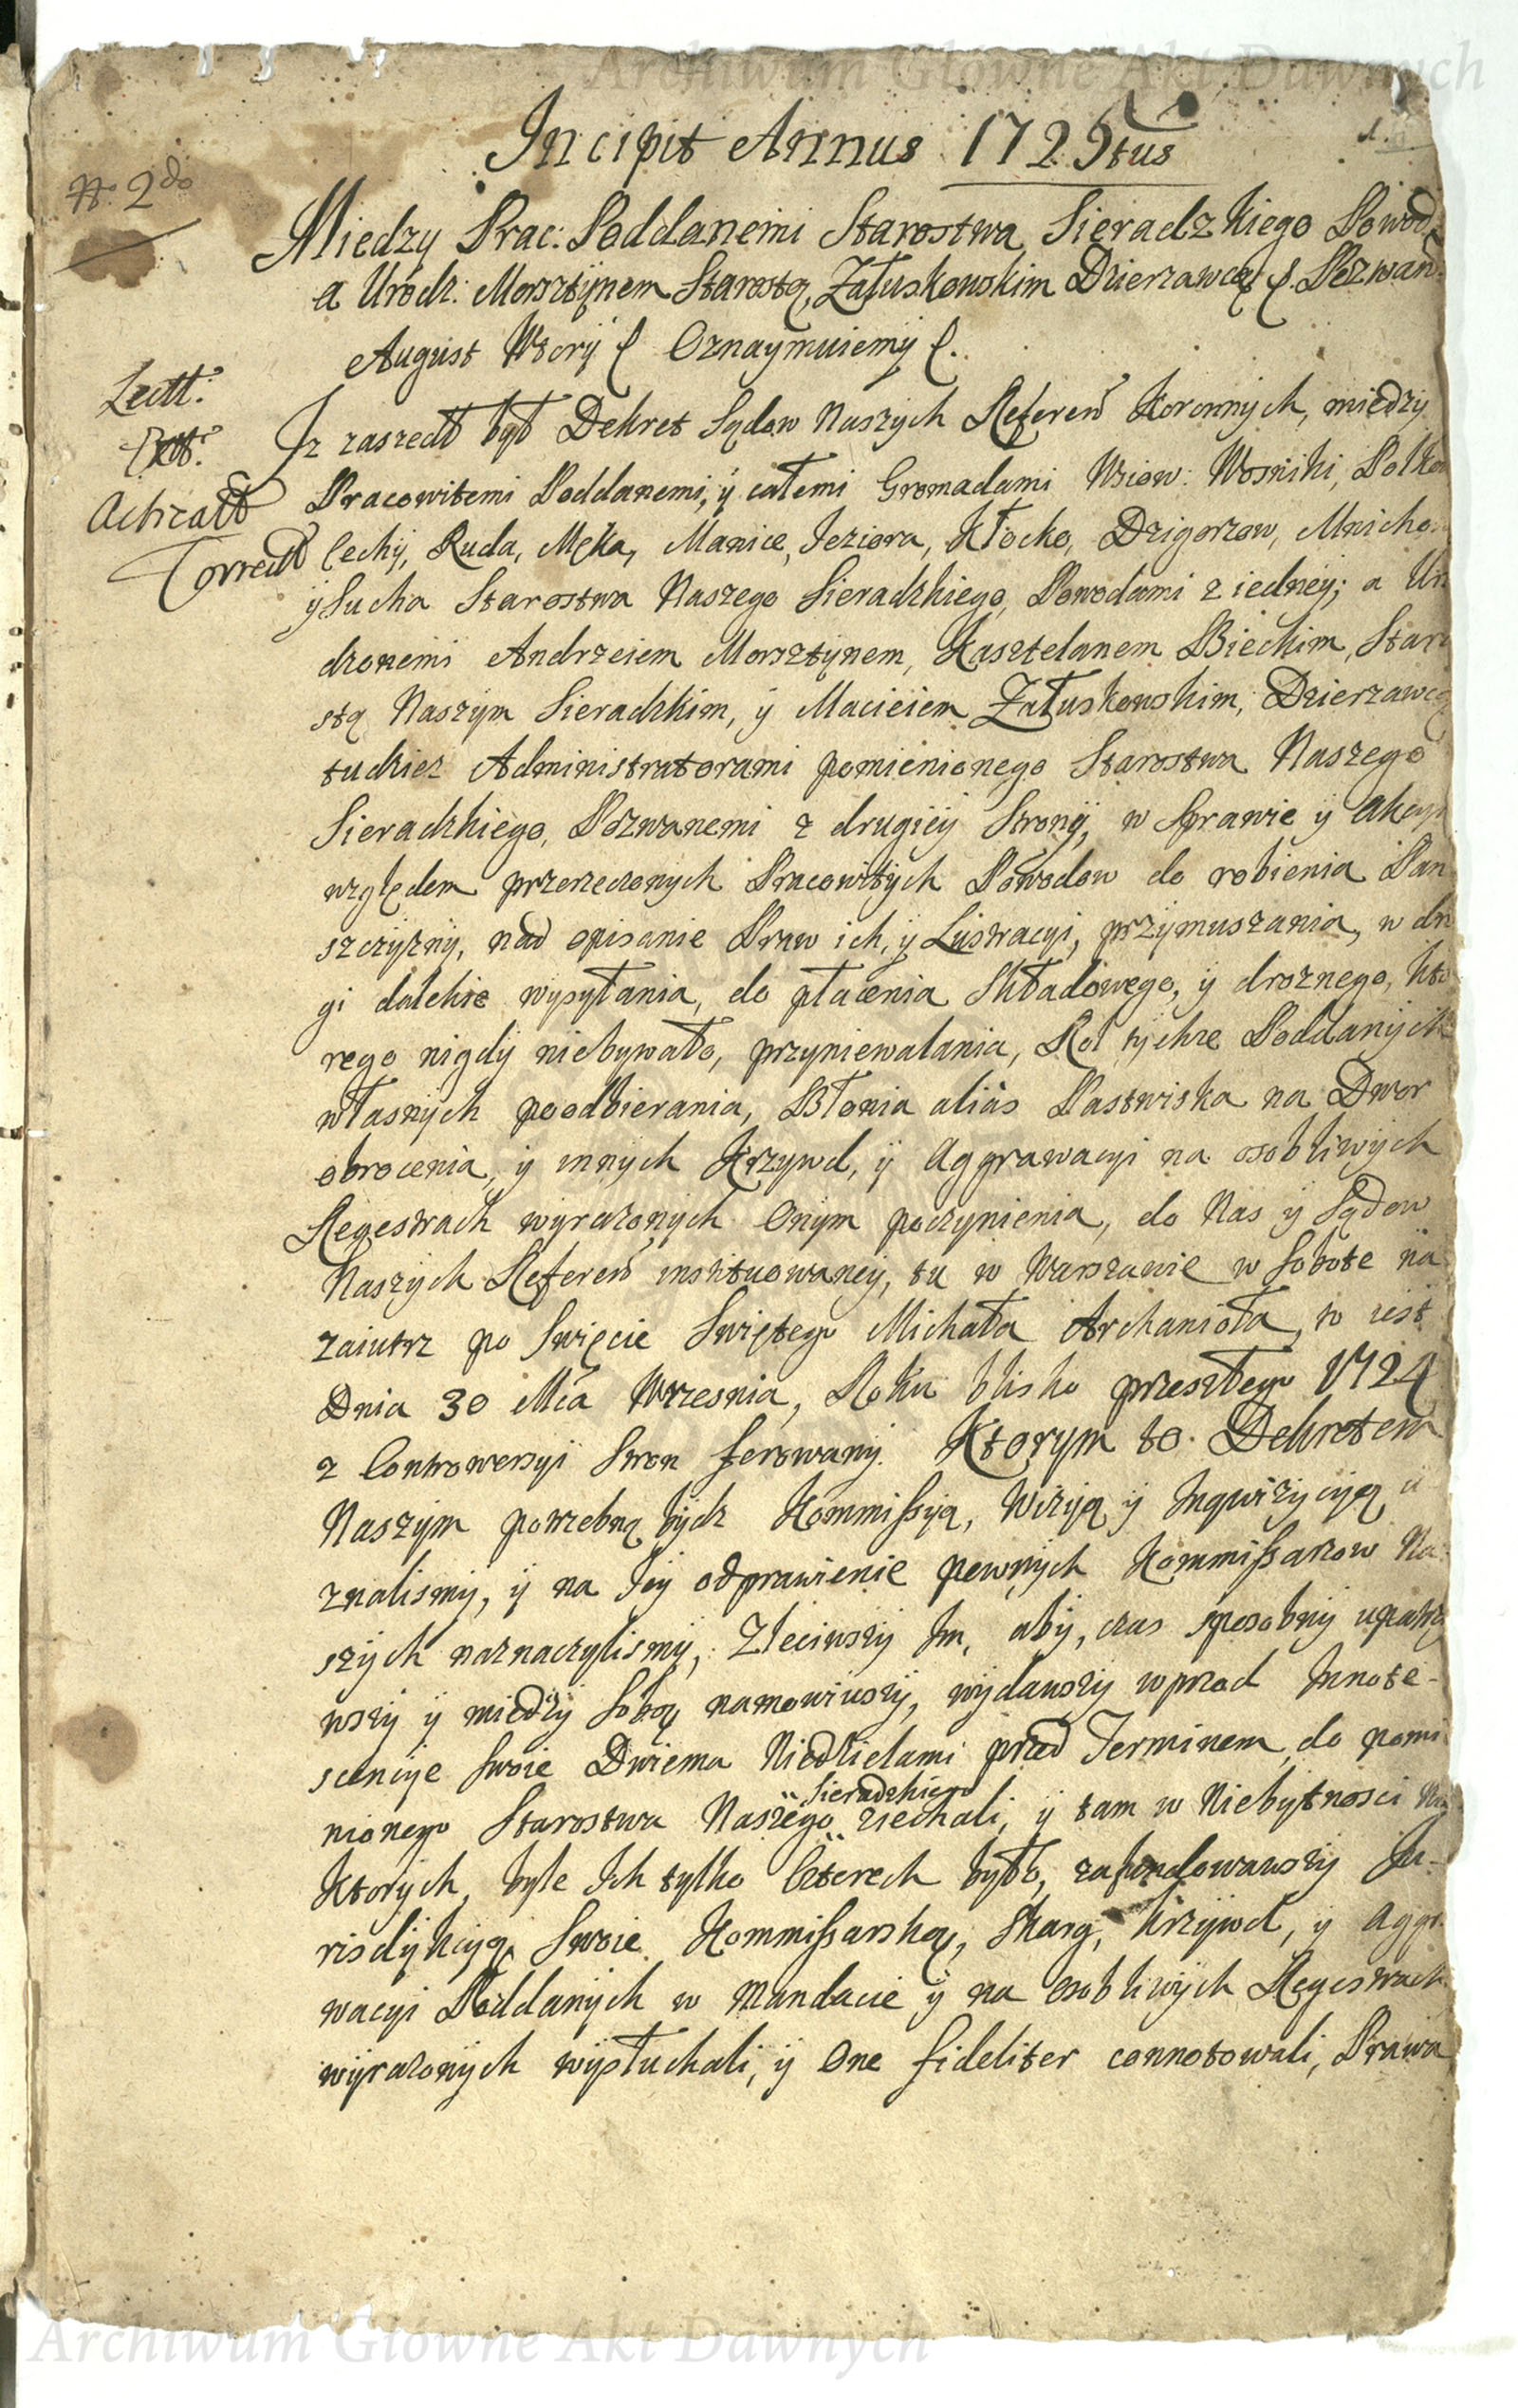 Archiwum Główne Akt Dawnych
1.
Incipit Annus 1725tus
No. 2do
Miedzy Prac: Poddanemi Starostwa Sieradzkiego Powod
a Urodz: Morsztynem Starostą, Załuskowskim Dzierzawcą &. Pozwan
August Wtory & Oznaymuiemy &.
Lectt:
Extt:
Acticatt
Correctt
Iz zaszedł był Dekret Sądow Naszych Referen Koronnych, miedzy
Pracowitemi Poddanemi, y całemi Gromadami Wsiow: Wosniki, Polko
Cechy, Ruda, Męka, Manice, Jeziora, Kłocko, Dzigorzow, Mnicho
y Sucha Starostwa Naszego Sieradzkiego, Powodami z iedney; a Uro
dzonemi Andrzeiem Morsztynem, Kasztelanem Bieckim, Staro
stą Naszym Sieradzkim, y Macieiem Załuskowskim, Dzierzawcą
tudziez Administratorami pomienionego Starostwa Naszego
Sieradzkiego, Pozwanemi z drugiey Strony, w Sprawie y Akcyi
względem przerzeczonych Pracowitych Powodow do robienia Pan
szczyzny, nad opisanie Praw ich, y Lustracyi, przymuszania, w dro
gi dalekie wysyłania, do płacenia Składowego, y droznego, kto
rego nigdy niebywało, przyniewalania, Rol tychze Poddanych
własnych poodbierania, Błonia aliàs Pastwiska na Dwor
obrocenia, y innych Krzywd, y Aggrawacyi na osobliwych
Regestrach wyrazonych Onym poczynienia, do Nas y Sądow
Naszych Referen instituowaney, tu w Warszawie w Sobote na
zaiutrz po Swięcie Swiętego Michała Archanioła, to iest
Dnia 30 Mca Wrzesnia, Roku blisko przeszłego 1724
z Controwersyi Stron ferowany. Ktorym to Dekretem
Naszym potrzebną bydz Kommissyą, Wizyą y Inqwizycyą u
znalismy, y na Iey odprawienie pewnych Kommissarzow Na
szych naznaczylismy, Zleciwszy Im, aby, czas sposobny upatrzy
wszy y miedzy Sobą namowiwszy, wydawszy wprzod Innote-
scencye swoie Dwiema Niedzielami przed Terminem, do pomi
nionego Starostwa Naszego Sieradzkiego ziechali, y tam w Niebytnosci Nie
ktorych, byle Ich tylko Czterech było, zafundowawszy Ju-
risdykcyą Swoię Kommissarską, Skarg, Krzywd, y Aggra
wacyi Poddanych w Mandacie y na osobliwych Regestrach
wyrazonych wysłuchali, y One fideliter connotowali, Prawa
Archiwum Główne Akt Dawnych